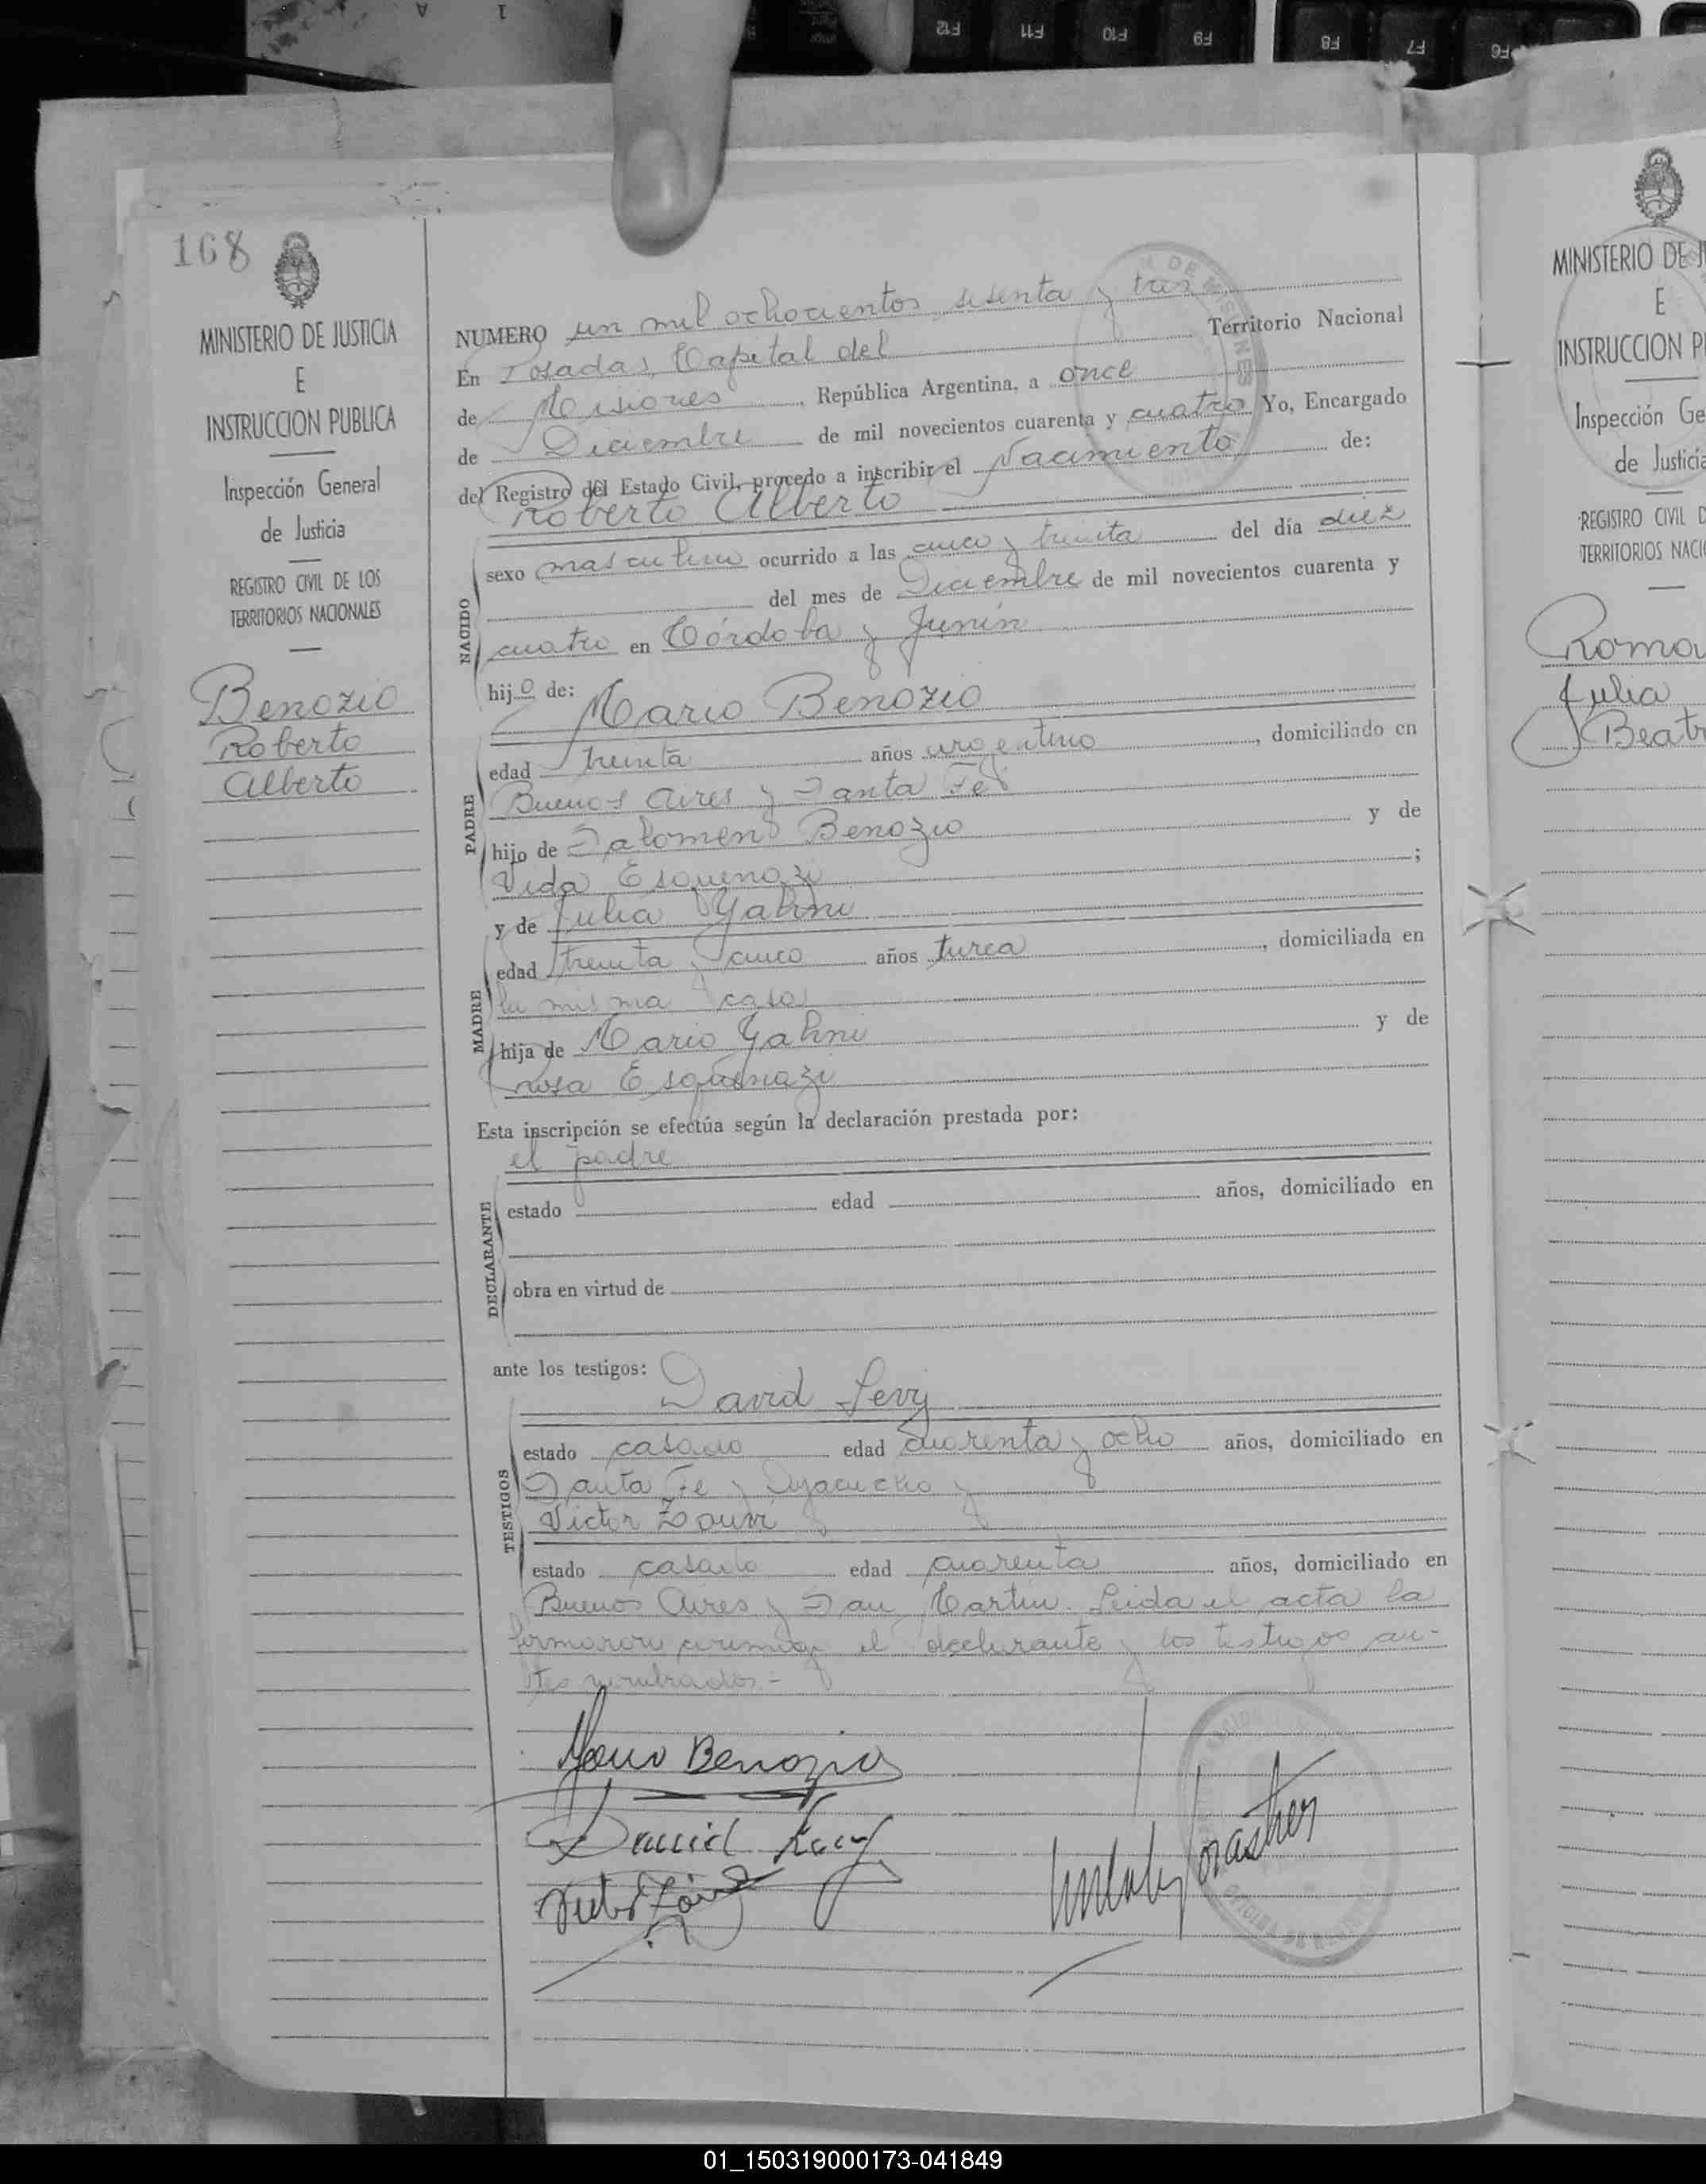 168
MINISTERIO DE JUSTICIA
E
INSTRUCCION PUBLICA
Inspección General
de Justicia
REGISTRO CIVIL DE LOS
TERRITORIOS NACIONALES
Benozio
Roberto
Alberto
NUMERO un mil ochocientos sesenta y tres
En Posadas, Capital del Territorio Nacional
de Misiones, República Argentina, a once
de Diciembre de mil novecientos cuarenta y cuatro Yo, Encargado
del Registro del Estado Civil, procedo a inscribir el Nacimiento de:
Roberto Alberto
NACIDO
sexo masculino ocurrido a las cinco y treinta del día diez
del mes de Diciembre de mil novecientos cuarenta y
cuatro en Córdoba y Junín
hijo de: Mario Benozio
PADRE
edad treinta años argentino, domiciliado en
Buenos Aires y Santa Fe
hijo de Salomon Benozio y de
Vida Esquenazi;
y de Julia Yahni
MADRE
edad treinta y cinco años turca, domiciliada en
la misma casa
hija de Mario Yahni y de
rosa Esquenazi
Esta inscripción se efectúa según la declaración prestada por:
el padre
DECLARANTE
estado edad años, domiciliado en
obra en virtud de
ante los testigos: David Levy
TESTIGOS
estado casado edad cuarenta y ocho años, domiciliado en
Santa Fe y Ayacucho y
Victor
estado casado edad cuarenta años, domiciliado en
Buenos Aires y San Martin. Leida el acta la
firmaron conmigo el declarante y los testigos an-
tes nombrados.-
Mario Benozio
David Levy
MINISTERIO DE J
E
INSTRUCCION P
Inspección Ge
de Justicia
REGISTRO CIVIL D
TERRITORIOS NACI
Julia
Beatr
F12 F11 F10 F9 F8 F7 F6
01_150319000173-041849